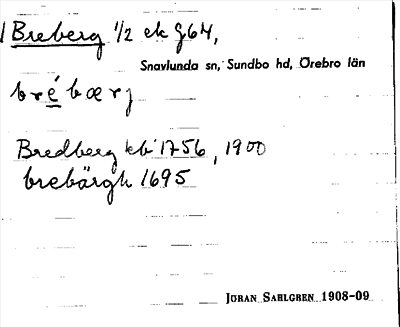 Breberg 1/2 ek G64,
Snavlunda sn, Sundbo hd, Örebro län
bre´bærj
Bredberg kb 1756, 1900
brebärgh 1695
JÖRAN SAHLGREN 1908-09